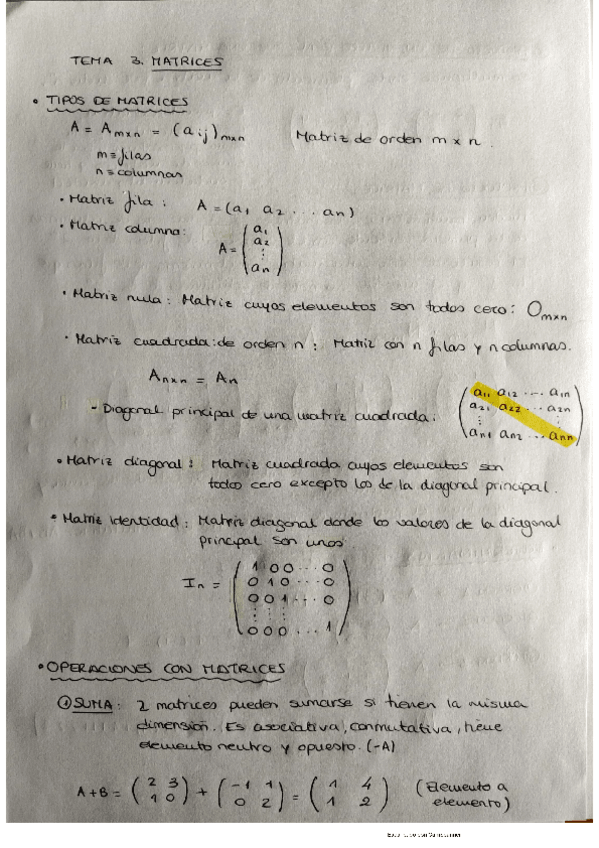 TEMA 3. MATRICES
• TIPOS DE MATRICES
A = Amxn = (aij)mxn Matriz de orden m x n.
m ≡ filas
n ≡ columnas
• Matriz fila: A = (a1 a2 ... an)
• Matriz columna:
A = (a1
a2
⋮
an)
• Matriz nula: Matriz cuyos elementos son todos cero: Omxn
• Matriz cuadrada: de orden n: Matriz con n filas y n columnas.
Anxn = An
- Diagonal principal de una matriz cuadrada:
(a11 a12 ... a1n
a21 a22 ... a2n
⋮ ⋮
an1 an2 ... ann)
• Matriz diagonal: Matriz cuadrada cuyos elementos son
todos cero excepto los de la diagonal principal.
• Matriz identidad: Matriz diagonal donde los valores de la diagonal
principal son unos
In =
(1 0 0 ... 0
0 1 0 ... 0
0 0 1 ... 0
⋮ ⋮ ⋮
0 0 0 ... 1)
• OPERACIONES CON MATRICES
① SUMA: 2 matrices pueden sumarse si tienen la misma
dimensión. Es asociativa, conmutativa, tiene
elemento neutro y opuesto. (-A)
A+B = (2 3 / 1 0) + (-1 1 / 0 2) = (1 4 / 1 2) (Elemento a
elemento)